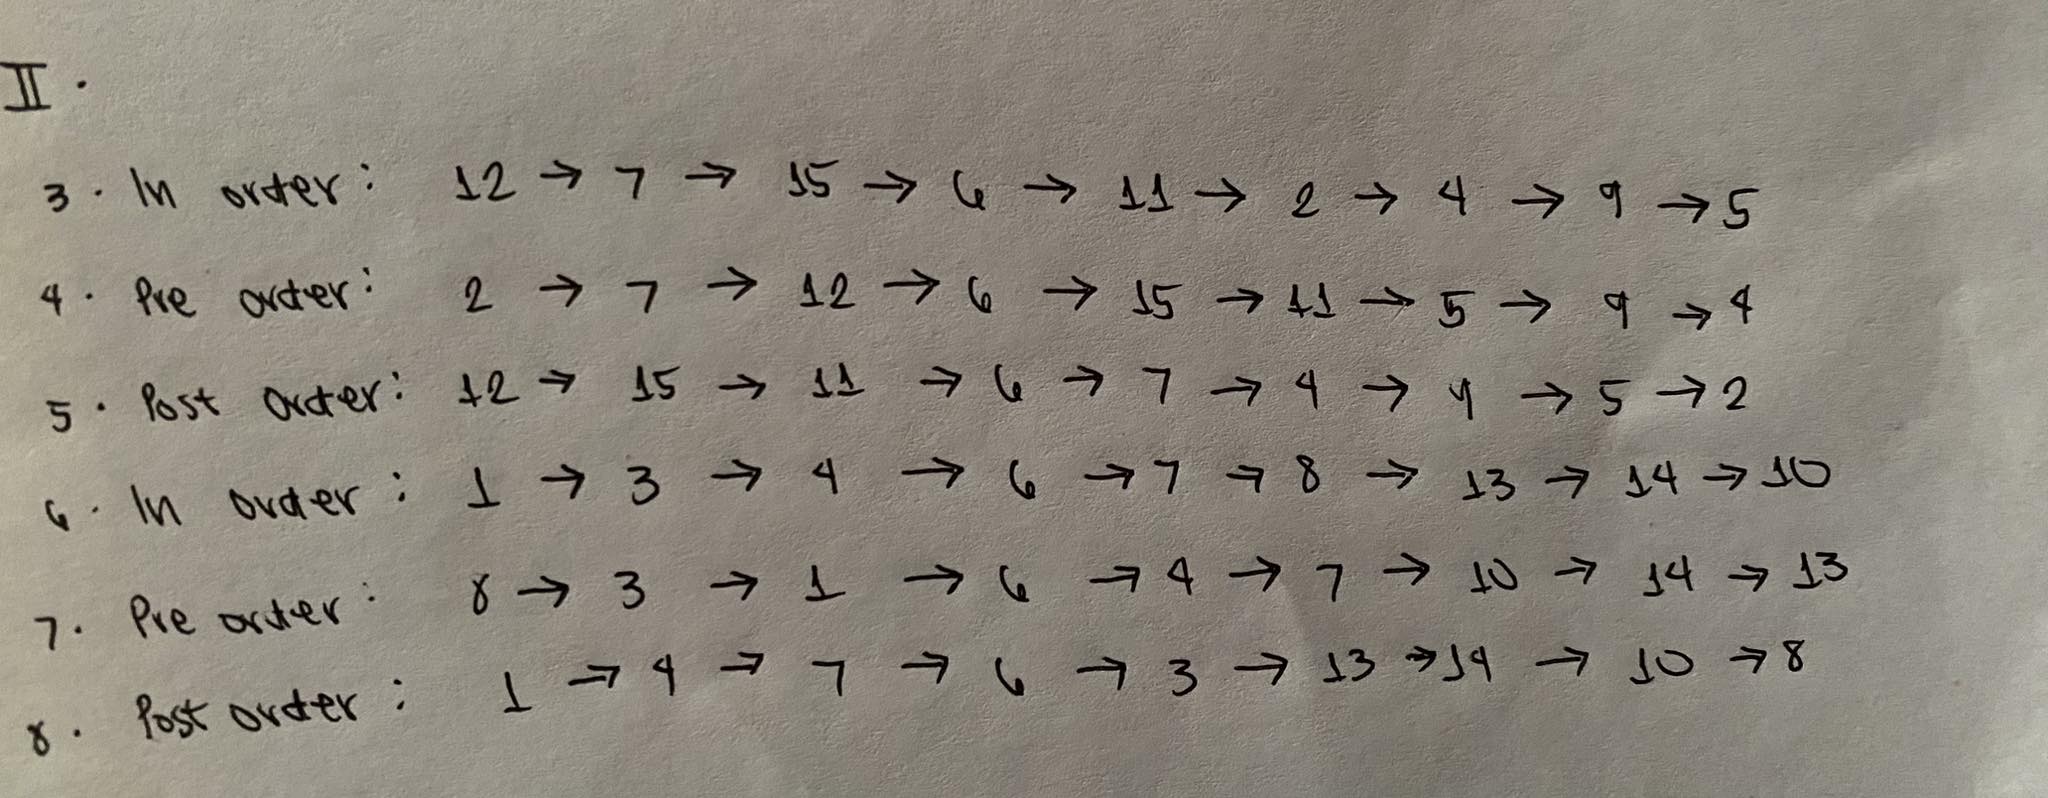 II.
3. In order: 12 → 7 → 15 → 6 → 11 → 2 → 4 → 9 → 5
4. Pre order: 2 → 7 → 12 → 6 → 15 → 11 → 5 → 9 → 4
5. Post order: 12 → 15 → 11 → 6 → 7 → 4 → 9 → 5 → 2
6. In order: 1 → 3 → 4 → 6 → 7 → 8 → 13 → 14 → 10
7. Pre order: 8 → 3 → 1 → 6 → 4 → 7 → 10 → 14 → 13
8. Post order: 1 → 4 → 7 → 6 → 3 → 13 → 14 → 10 → 8